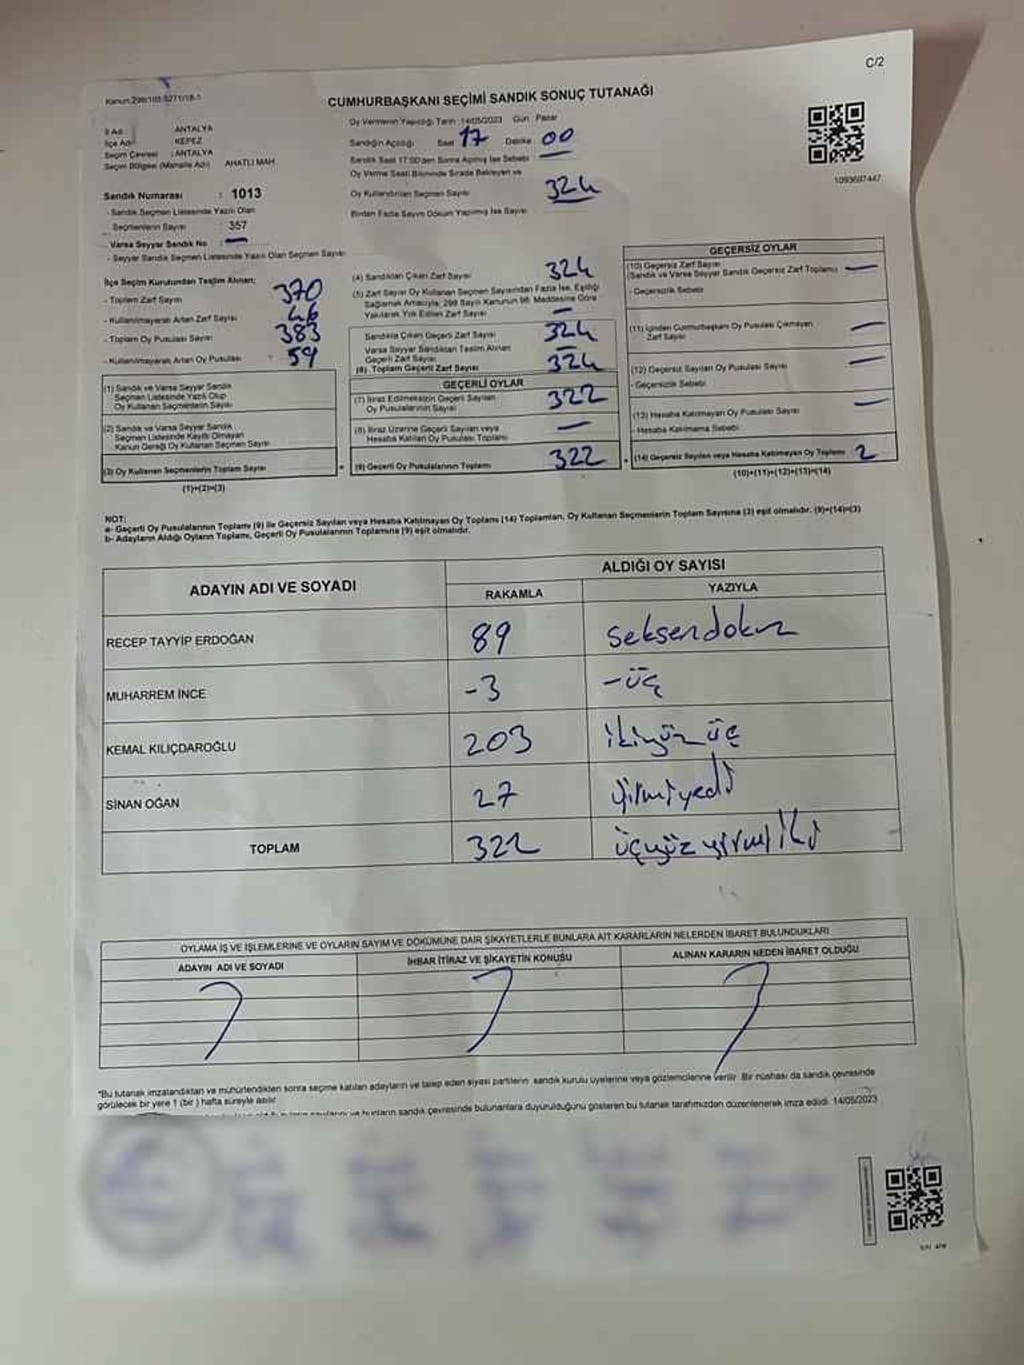 C/2
Kanun:298/105 5271/18-1
CUMHURBAŞKANI SEÇİMİ SANDIK SONUÇ TUTANAĞI
İl Adı : ANTALYA
İlçe Adı : KEPEZ
Seçim Çevresi : ANTALYA
Seçim Bölgesi (Mahalle Adı) AHATLI MAH.
Sandık Numarası : 1013
- Sandık Seçmen Listesinde Yazılı Olan
Seçmenlerin Sayısı 357
- Varsa Seyyar Sandık No : —
- Seyyar Sandık Seçmen Listesinde Yazılı Olan Seçmen Sayısı:
Oy Vermenin Yapıldığı Tarih :14/05/2023 Gün : Pazar
Sandığın Açıldığı Saat 17 Dakika 00
Sandık Saat 17:00'den Sonra Açılmış İse Sebebi —
Oy Verme Saati Bitiminde Sırada Bekleyen ve
Oy Kullandırılan Seçmen Sayısı 324
Birden Fazla Sayım Döküm Yapılmış İse Sayısı
1093687447
İlçe Seçim Kurulundan Teslim Alınan;
- Toplam Zarf Sayısı 370
- Kullanılmayarak Artan Zarf Sayısı 46
- Toplam Oy Pusulası Sayısı 383
- Kullanılmayarak Artan Oy Pusulası 59
(1) Sandık ve Varsa Seyyar Sandık
Seçmen Listesinde Yazılı Olup
Oy Kullanan Seçmenlerin Sayısı
(2) Sandık ve Varsa Seyyar Sandık
Seçmen Listesinde Kayıtlı Olmayan
Kanun Gereği Oy Kullanan Seçmen Sayısı
(3) Oy Kullanan Seçmenlerin Toplam Sayısı
(1)+(2)=(3)
(4) Sandıktan Çıkan Zarf Sayısı 324
(5) Zarf Sayısı Oy Kullanan Seçmen Sayısından Fazla İse, Eşitliği
Sağlamak Amacıyla; 298 Sayılı Kanunun 98. Maddesine Göre
Yakılarak Yok Edilen Zarf Sayısı —
Sandıkta Çıkan Geçerli Zarf Sayısı 324
Varsa Seyyar Sandıktan Teslim Alınan
Geçerli Zarf Sayısı —
(6) Toplam Geçerli Zarf Sayısı 324
GEÇERLİ OYLAR
(7) İtiraz Edilmeksizin Geçerli Sayılan
Oy Pusulalarının Sayısı 322
(8) İtiraz Üzerine Geçerli Sayılan veya
Hesaba Katılan Oy Pusulası Toplamı —
= (9) Geçerli Oy Pusulalarının Toplamı 322
GEÇERSİZ OYLAR
(10) Geçersiz Zarf Sayısı
(Sandık ve Varsa Seyyar Sandık Geçersiz Zarf Toplamı) —
- Geçersizlik Sebebi
(11) İçinden Cumhurbaşkanı Oy Pusulası Çıkmayan
Zarf Sayısı —
(12) Geçersiz Sayılan Oy Pusulası Sayısı —
- Geçersizlik Sebebi
(13) Hesaba Katılmayan Oy Pusulası Sayısı —
- Hesaba Katılmama Sebebi
+ (14) Geçersiz Sayılan veya Hesaba Katılmayan Oy Toplamı 2
(10)+(11)+(12)+(13)=(14)
NOT:
a- Geçerli Oy Pusulalarının Toplamı (9) ile Geçersiz Sayılan veya Hesaba Katılmayan Oy Toplamı (14) Toplamları, Oy Kullanan Seçmenlerin Toplam Sayısına (3) eşit olmalıdır. (9)+(14)=(3)
b- Adayların Aldığı Oyların Toplamı, Geçerli Oy Pusulalarının Toplamına (9) eşit olmalıdır.
ADAYIN ADI VE SOYADI ALDIĞI OY SAYISI
RAKAMLA YAZIYLA
RECEP TAYYİP ERDOĞAN 89 seksendokuz
MUHARREM İNCE -3 -üç
KEMAL KILIÇDAROĞLU 203 ikiyüz üç
SİNAN OĞAN 27 yirmiyedi
TOPLAM 322 üçyüz yirmi iki
OYLAMA İŞ VE İŞLEMLERİNE VE OYLARIN SAYIM VE DÖKÜMÜNE DAİR ŞİKAYETLERLE BUNLARA AİT KARARLARIN NELERDEN İBARET BULUNDUKLARI
ADAYIN ADI VE SOYADI İHBAR İTİRAZ VE ŞİKAYETİN KONUSU ALINAN KARARIN NEDEN İBARET OLDUĞU
*Bu tutanak imzalandıktan ve mühürlendikten sonra seçime katılan adayların ve talep eden siyasi partilerin sandık kurulu üyelerine veya gözlemcilerine verilir. Bir nüshası da sandık çevresinde
görülecek bir yere 1 (bir) hafta süreyle asılır.
ve bunların sandık çevresinde bulunanlara duyurulduğunu gösteren bu tutanak tarafımızdan düzenlenerek imza edildi. 14/05/2023